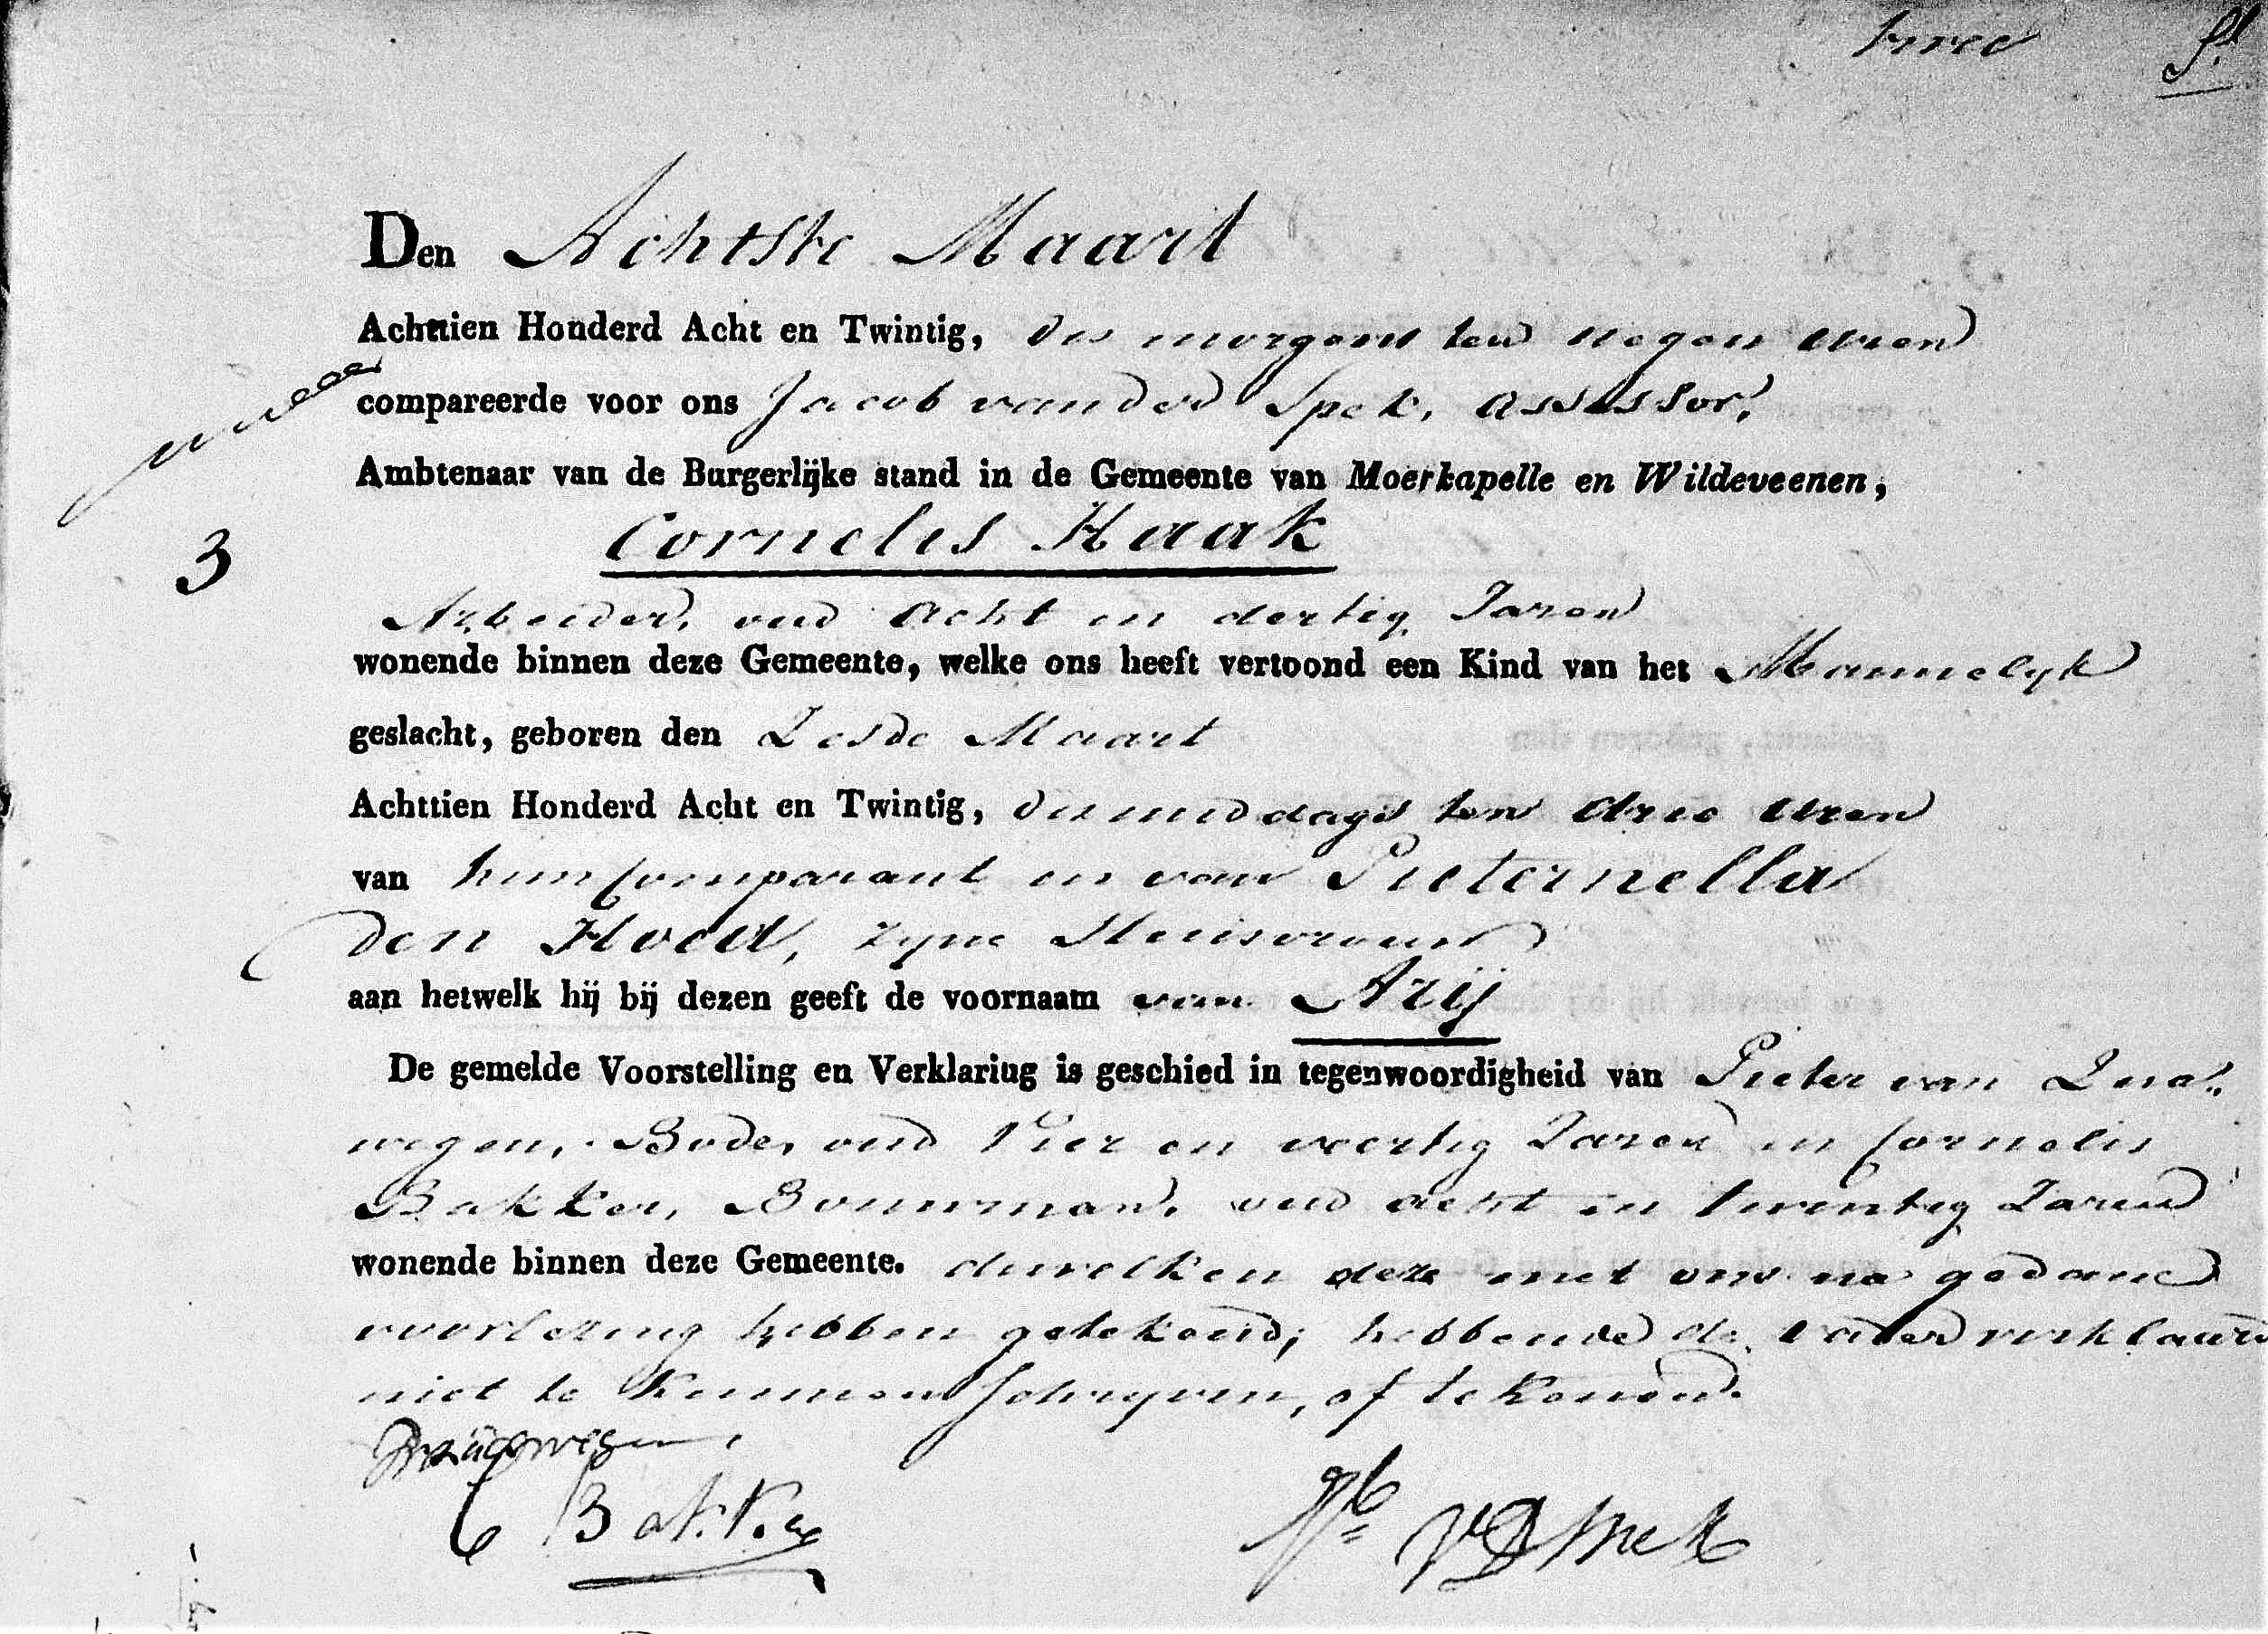 twee
Den Achtste Maart
Achttien Honderd Acht en Twintig, des morgens ten negen uren
compareerde voor ons Jacob van der Spek, Assessor,
Ambtenaar van de Burgerlijke stand in de Gemeente van Moerkapelle en Wildeveenen,
Cornelis Haak
3
Arbeider, oud Acht en dertig Jaren
wonende binnen deze Gemeente, welke ons heeft vertoond een Kind van het Mannelyk
geslacht, geboren den Zesde Maart
Achttien Honderd Acht en Twintig, des middags ten drie uren
van hem Comparant en van Pieternella
den Hoed, zyne Huisvrouw
aan hetwelk hij bij dezen geeft de voornaam van Arij
De gemelde Voorstelling en Verklaring is geschied in tegenwoordigheid van Pieter van
wegen, Bode, oud Vier en veertig Jaren en Cornelis
Bakker, Bouwman, oud acht en twintig Jaren
wonende binnen deze Gemeente. dewelken deze met ons na gedane
voorlezing hebben getekend; hebbende de vader verklaard
niet te kunnen Schryven, of tekenen.
C Bakker
VDSpek